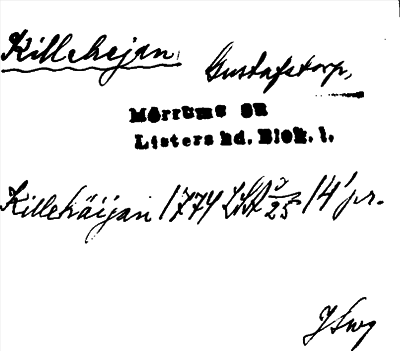 Killehejan Gustafstorp,
Mörrums sn
Listers hd. Blek. l.
Killehäijan 1774 LSA 25 14' pr.